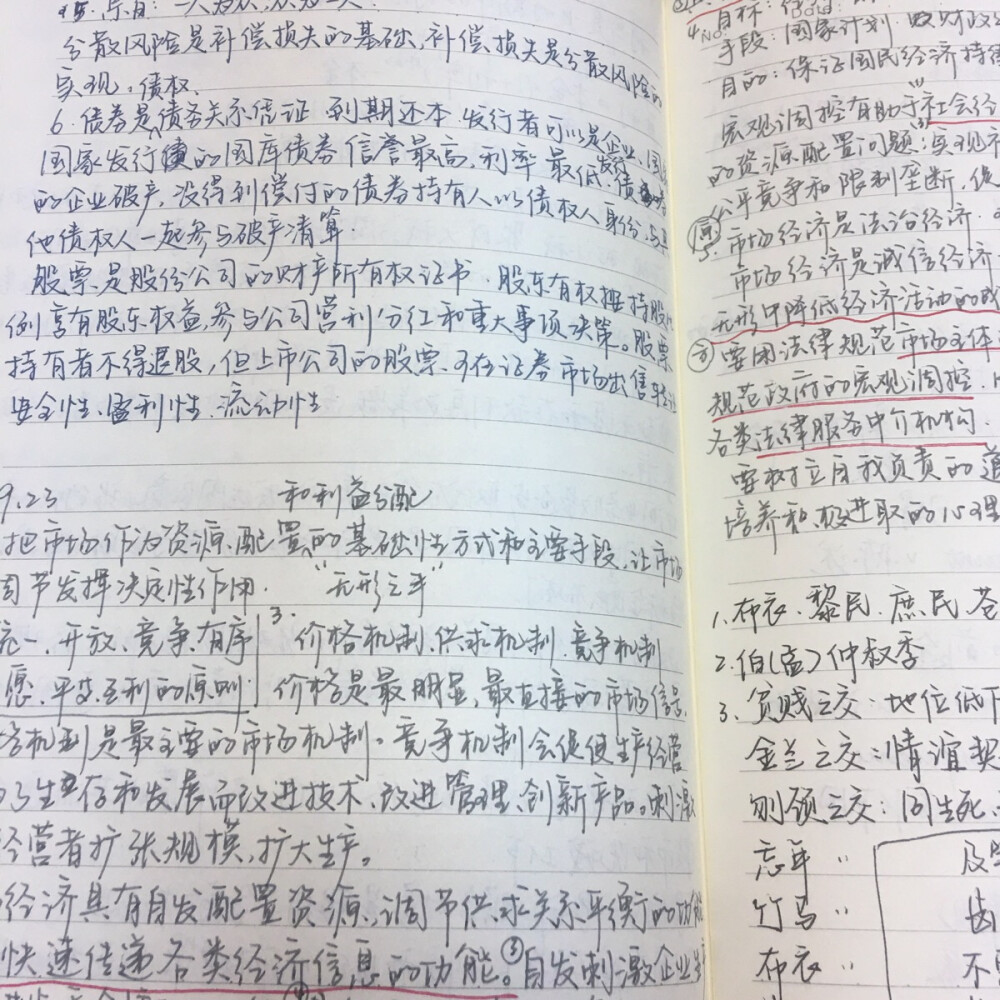 分散风险是补偿损失的基础,补偿损失是分散风险的
实现。债权、
6.债券是债务关系凭证 到期还本.发行者可以是企业、国
国家发行的国库债券信誉最高,利率最低.发行债
的企业破产,没得到偿付的债券持有人以债权人身份,与其
他债权人一起参与破产清算
股票是股份公司的财产所有权证书.股东有权按持股比
例享有股东权益,参与公司营利分红和重大事项决策。股票
持有者不得退股,但上市公司的股票可在证券市场出售转让
安全性、盈利性、流动性
9.23 和利益分配
把市场作为资源配置的基础性方式和主要手段,让市场
周节发挥决定性作用. "无形之手"
统一、开放、竞争、有序 3. 价格机制、供求机制、竞争机制
愿、平等互利的原则. 价格是最明显、最直接的市场信号.
格机制是最主要的市场机制。竞争机制会促使生产经营
为了生存和发展而改进技术、改进管理、创新产品。刺激
经营者扩张规模,扩大生产。
经济具有自发配置资源、调节供求关系平衡的功能
快速传递各类经济信息的功能。③自发刺激企业
目标:
手段:国家计划
目的:保证国民经济持续
宏观调控有助于社会经
的资源配置问题;实现
公平竞争和限制垄断,促
5.市场经济是法治经济.
市场经济是诚信经济
无形中降低经济活动的成
要用法律规范市场主体
规范政府的宏观调控.
各类法律服务中介机构.
要树立自我负责的道
培养积极进取的心理
1.布衣、黎民、庶民、苍
2.伯(孟)仲叔季
3.贫贱之交:地位低下
金兰之交:情谊契
刎颈之交:同生死、
忘年 〃 及
竹马 〃 齿
布衣 〃 不